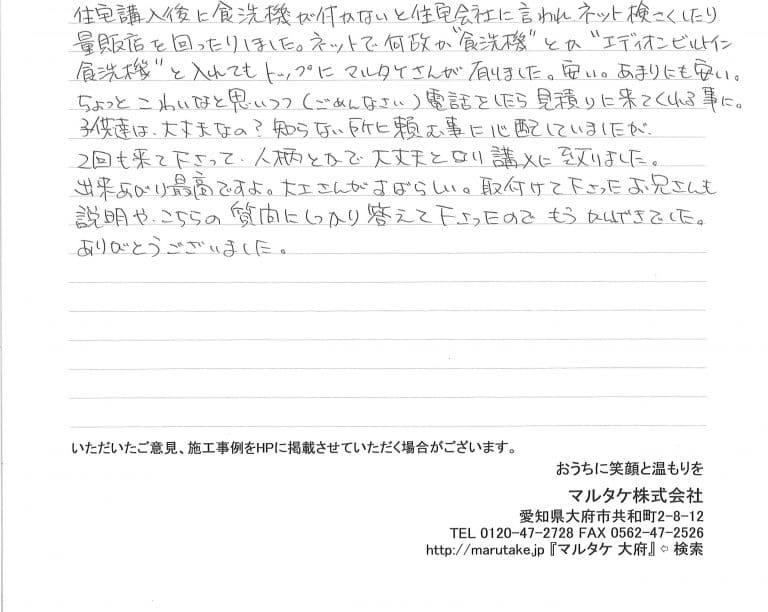 住宅講入後に食洗機が付かないと住宅会社に言われネット検さくしたり
量販店を回ったりしました。ネットで何故か"食洗機"とか"エディオンビルトイン
食洗機"と入れてもトップにマルタケさんが有りました。安い。あまりにも安い。
ちょっとこわいなと思いつつ(ごめんなさい)電話をしたら見積りに来てくれる事に。
子供達は、大丈夫なの?知らない所に頼む事に心配していましたが、
2回も来て下さって、人柄とかで大丈夫となり講入に致りました。
出来あがり最高ですよ。大工さんがすばらしい。取付けて下さったお兄さんも
説明や、こちらの質問にしっかり答えて下さったのでもう なっとくできました。
ありがとうございました。
いただいたご意見、施工事例をHPに掲載させていただく場合がございます。
おうちに笑顔と温もりを
マルタケ株式会社
愛知県大府市共和町2-8-12
TEL 0120-47-2728 FAX 0562-47-2526
http://marutake.jp 『マルタケ 大府』⇦ 検索